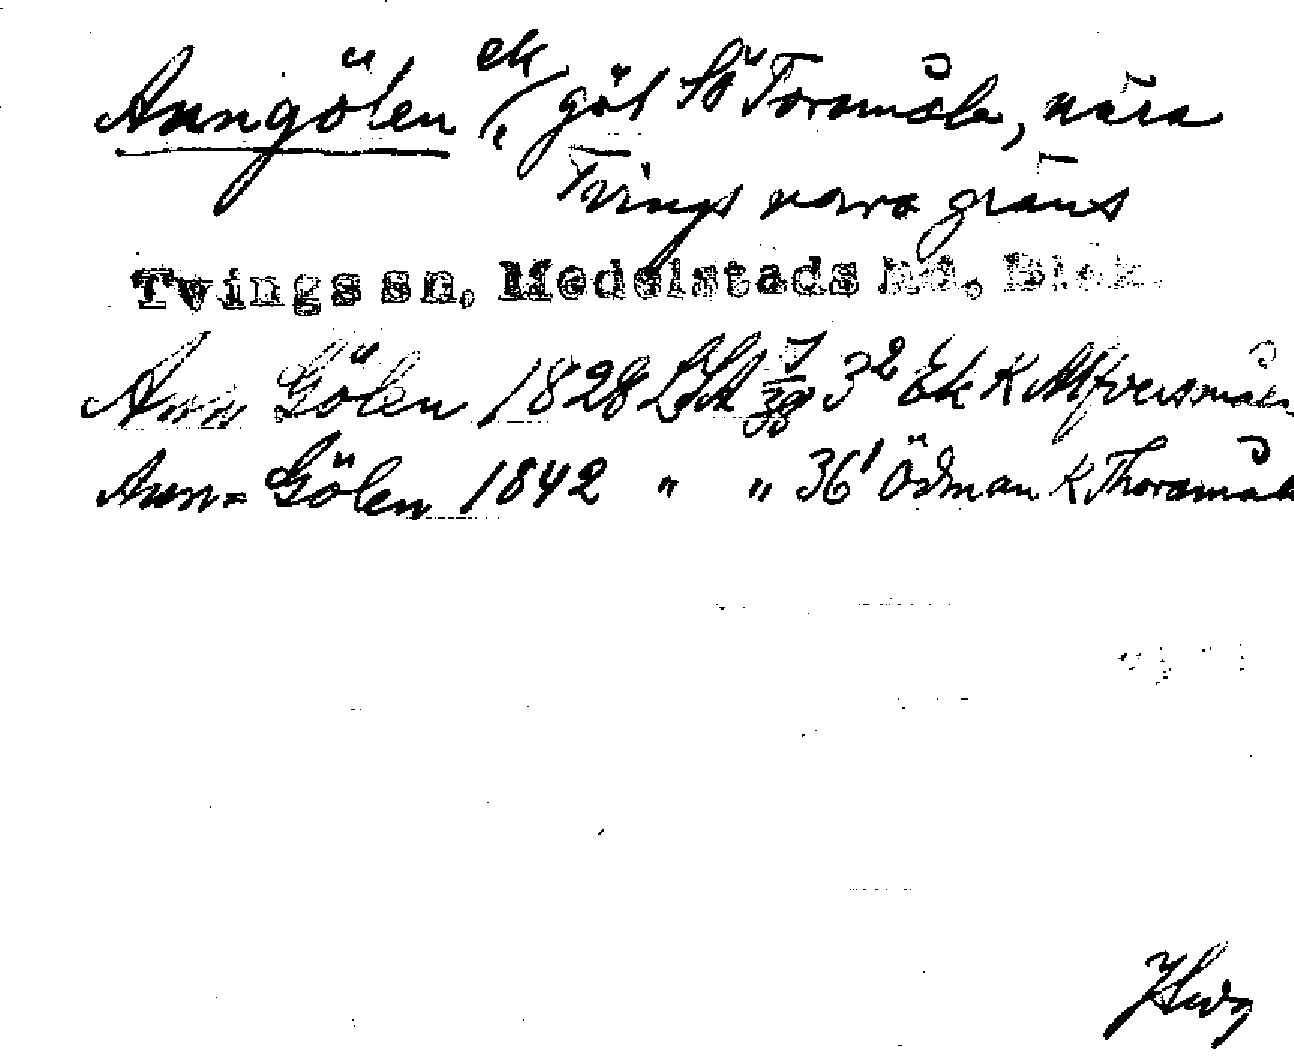 Anngölen ek göl SV Toramåla, nära
Tvings norra gräns
Tvings sn, Medelstads hd, Blek.
Ann Gölen 1828 LSA 3² Ek K Alfversmåla
Ann= Gölen 1842 " " 36' Ödman K Thoramåla